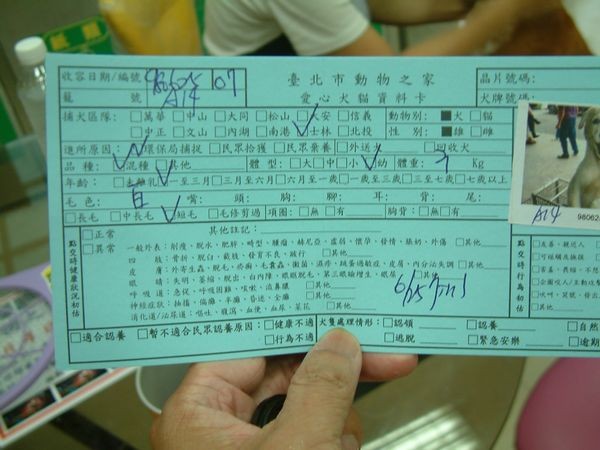 收容日期/編號 980625 107 臺北市動物之家 晶片號碼:
籠 號 A14 愛心犬貓資料卡 犬牌號碼:
捕犬區隊: □萬華□中山□大同□松山□大安□信義 動物別: ■犬□貓
□中正□文山□內湖□南港□士林□北投 性 別: ■雄□雌
進所原因: □環保局捕捉□民眾拾獲□民眾棄養□外送犬 □回收犬
品 種: □混種□其他 體 型: □大□中□小□幼 體重: Kg
年齡: □未離乳□一至三月□三月至六月□六月至一歲□一至三歲□三至七歲□七歲以上
毛 色: 嘴: 頭: 胸: 腳: 耳: 背: 尾:
□長毛□中長毛□短毛□毛修剪過 項圈: □無□有 胸背: □無□有
A14 98062
點交時健康狀況初估
□正常 其他註記:
□異常 一般外表: 削瘦、脫水、肥胖、畸型、腫瘤、赫尼亞、虛弱、懷孕、發情、結紮、外傷 □其他
四 肢: 骨折、脫臼、截肢、發育不良、跛行 □其他
皮 膚: 外寄生蟲、脫毛、疥癬、毛囊蟲、黴菌、濕疹、跳蚤過敏症、皮屑、內分泌失調□其他
眼 睛: 失明、萎縮、脫出、白內障、眼瞼脫毛、第三眼瞼增生、眼屎 □其他
呼 吸 道: 急促、呼吸困難、咳嗽、流鼻膿 □其他
神經症狀: 抽搐、偏癱、半癱、昏迷、全癱 □其他
消化道/泌尿道: 嘔吐、腹瀉、血便、血尿、菜花 □其他
6/25
點交時行為初估
□友善、親近人
□其他
□適合認養 □暫不適合民眾認養原因: □健康不適
□行為不適
犬隻處理情形: □認領 □認養 □自然
□逃脫 □緊急安樂 □逾期